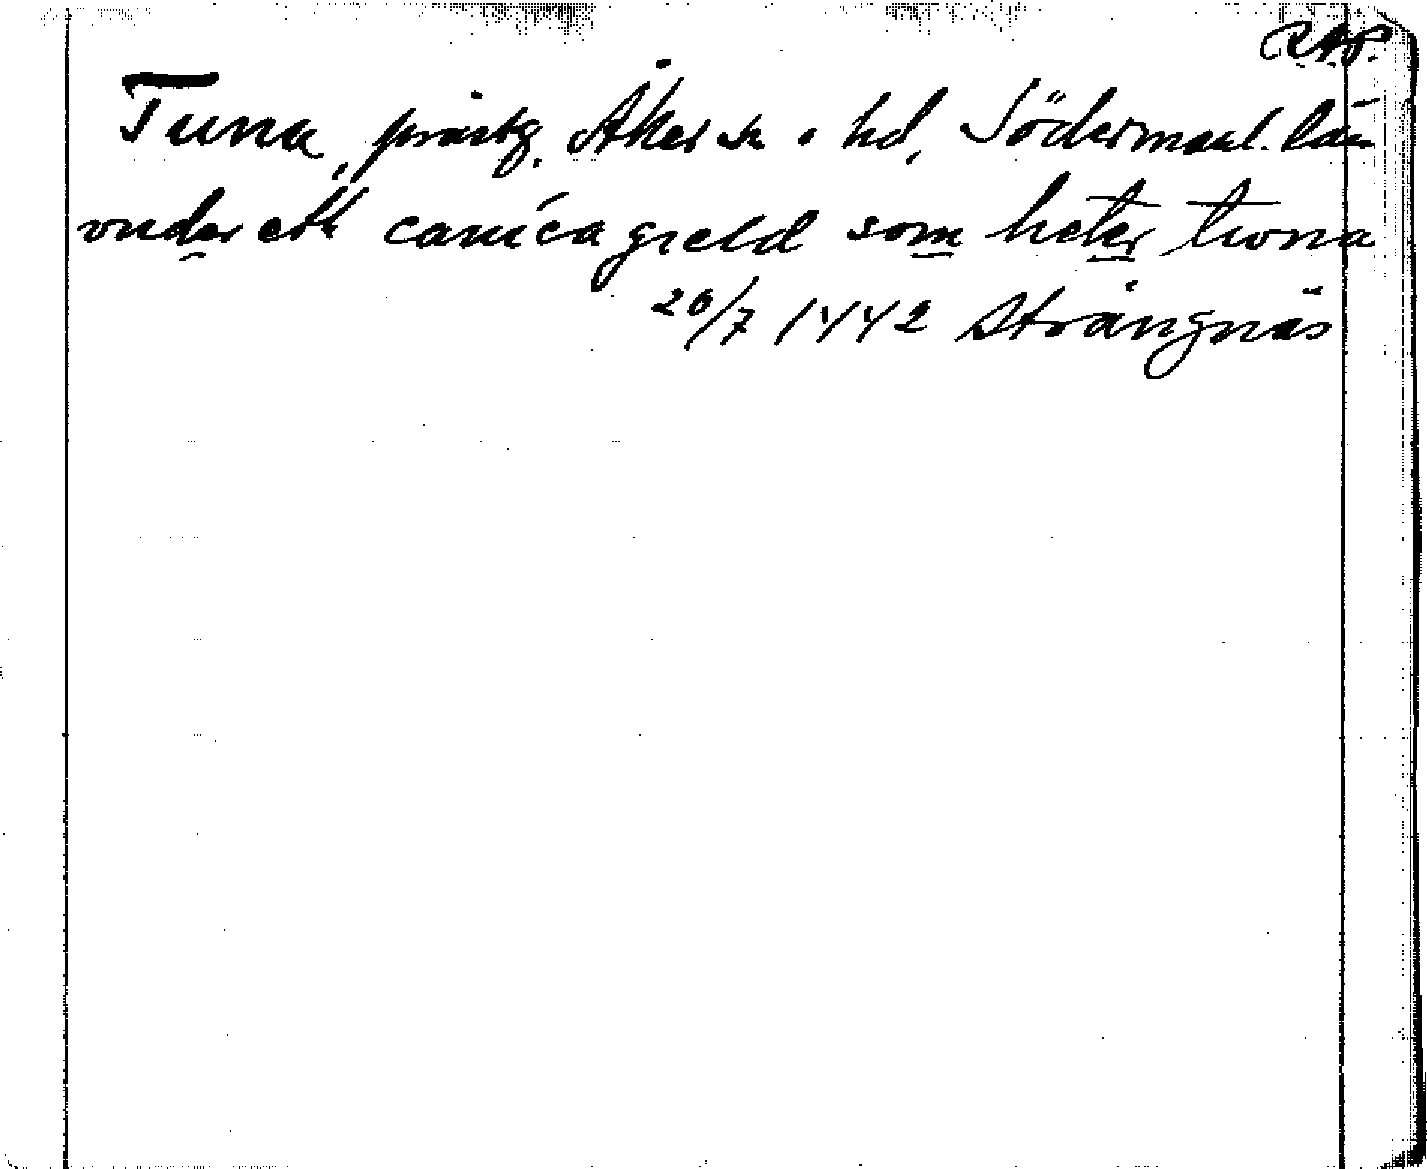 RAP.
Tuna, prästg. Åkers sn o hd, Södermanl. län
vnder ett canica gield som heter twna
20/7 1442 Strängnäs